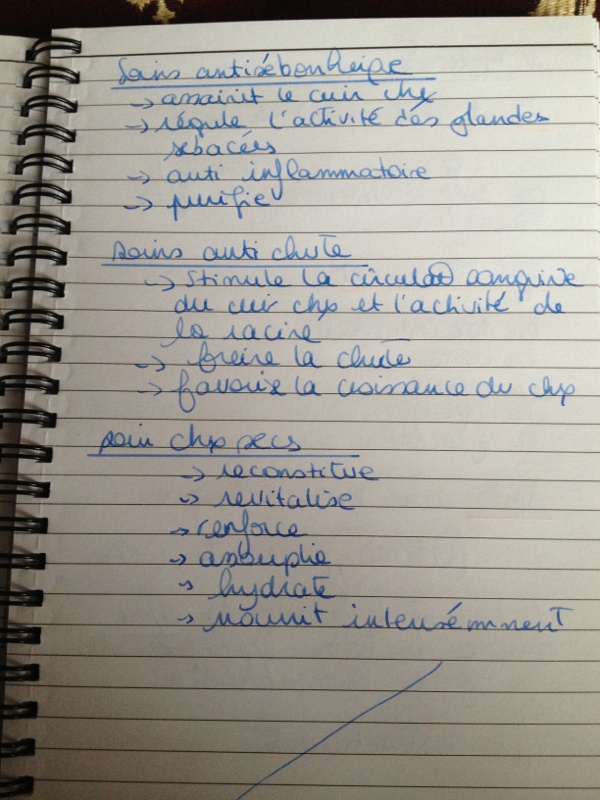 Soins antiséborrheique
→ assainit le cuir chx
→ régule l'activité des glandes
sebacées
→ anti inflammatoire
→ purifie
soins anti chute
→ stimule la circulat° sanguine
du cuir chx et l'activité de
la racine
→ freine la chute
→ favorise la croissance du chx
soin chx secs
→ reconstitue
→ revitalise
→ renforce
→ assouplie
→ hydrate
→ nourrit intensémment